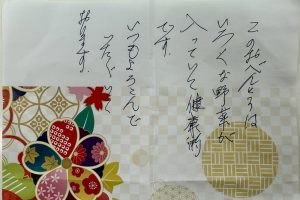 このおべんとうは
いろ〱な野菜が
入っていて健康的
です。
いつもよろこんで
いただいて
おります。